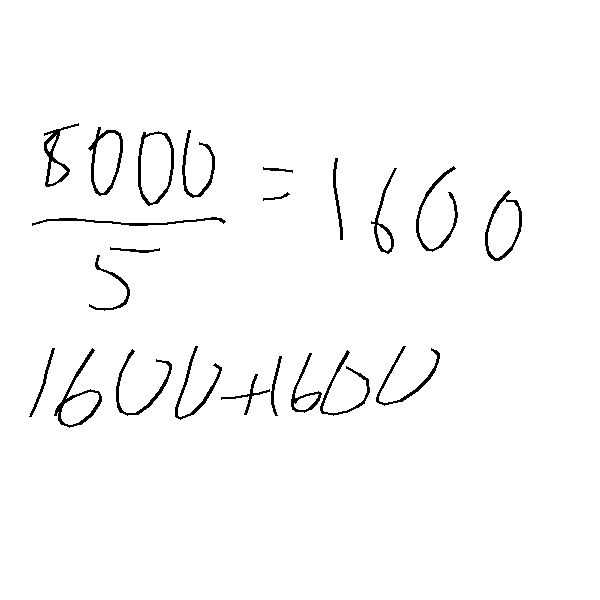 8000/5 = 1600
1600+1600